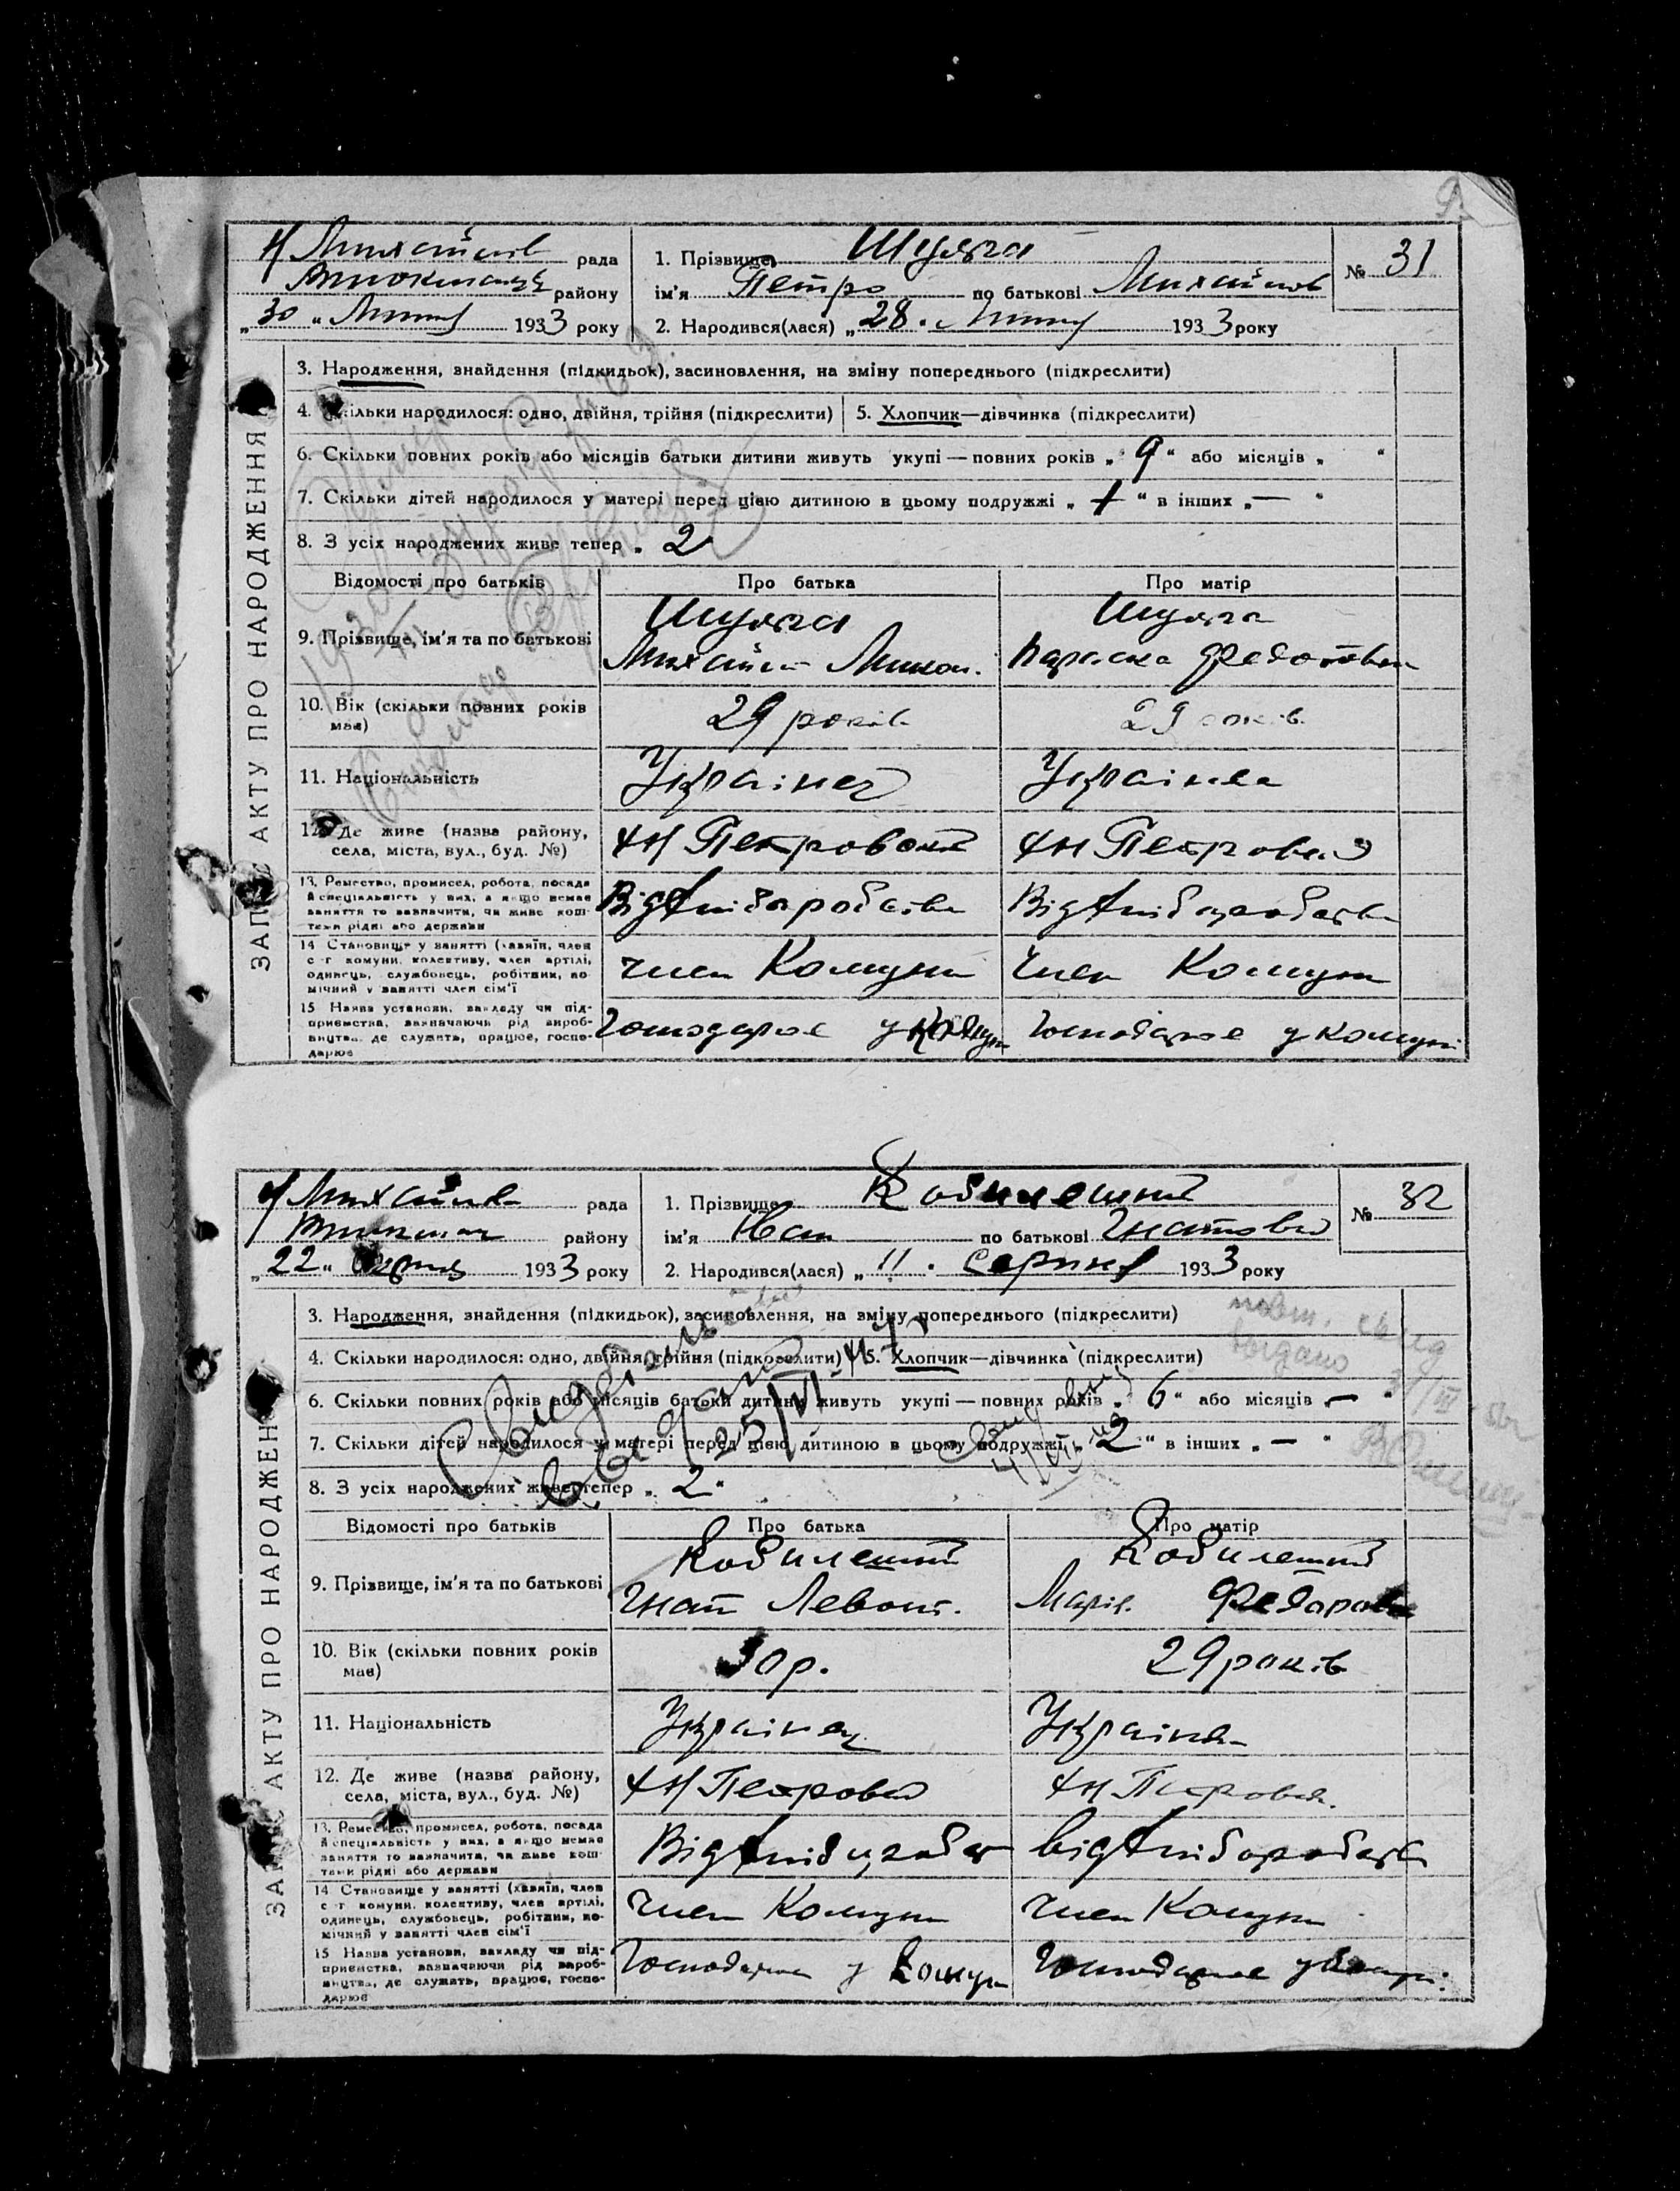 Н Михайлів рада
району
„30“ Липня 1933 року
1. Прізвище Шуляга
ім'я Петро по батькові Михайлов
2. Народився(лася) „28. Липня 1933 року
№ 31
ЗАПИС АКТУ ПРО НАРОДЖЕННЯ
3. Народження, знайдення (підкидьок), засиновлення, на зміну попереднього (підкреслити)
4. Скільки народилося: одно, двійня, трійня (підкреслити) 5. Хлопчик—дівчинка (підкреслити)
6. Скільки повних років або місяців батьки дитини живуть укупі — повних років „ 9 “ або місяців „ “
7. Скільки дітей народилося у матері перед цією дитиною в цьому подружжі „ “ в інших „ — “
8. З усіх народжених живе тепер „ 2
Відомості про батьків Про батька Про матір
9. Прізвище, ім'я та по батькові
Шуляга
Михайло Микол.
Шуляга
Параска Федотовна
10. Вік (скільки повних років має) 29 років 29 років
11. Національність Українец Українка
12. Де живе (назва району, села, міста, вул., буд. №)
4Н Петровский 4Н Петровка
13. Ремество, промисел, робота, посада й спеціяльність у них, а якщо немає заняття то зазначити, чи живе коштами рідні або держави
Від хлібаробства Від хлібаробства
14 Становище у занятті (хазяїн, член с-г комуни, колективу, член артілі, одинець, службовець, робітник, помічний у занятті член сім'ї
член Комуни член Комуни
15 Назва установи, закладу чи підприємства, зазначаючи рід виробництва, де служить, працює, господарює
Господарює у Комуні Господарює у комуні
Н Михайлів рада
району
„22“ Серпня 1933 року
1. Прізвище Кобилецкий
ім'я Иван по батькові Гнатович
2. Народився(лася) „11. Серпня 1933 року
№ 32
ЗАПИС АКТУ ПРО НАРОДЖЕННЯ
3. Народження, знайдення (підкидьок), засиновлення, на зміну попереднього (підкреслити)
4. Скільки народилося: одно, двійня, трійня (підкреслити) 5. Хлопчик—дівчинка (підкреслити)
6. Скільки повних років або місяців батьки дитини живуть укупі — повних років „ 6 “ або місяців — “
7. Скільки дітей народилося у матері перед цією дитиною в цьому подружжі „ 2 “ в інших „ — “
8. З усіх народжених живе тепер „ 2 “
Відомості про батьків Про батька Про матір
9. Прізвище, ім'я та по батькові
Кобилецкий
Гнат Левонт.
Кобилецкий
Марія Федоровна
10. Вік (скільки повних років має) 30 р. 29 років
11. Національність Українец Українка
12. Де живе (назва району, села, міста, вул., буд. №)
4Н Петровка 4Н Петровка
13. Ремество, промисел, робота, посада й спеціяльність у них, а якщо немає заняття то зазначити, чи живе коштами рідні або держави
Від хлібаробст від хлібаробства
14 Становище у занятті (хазяїн, член с-г комуни, колективу, член артілі, одинець, службовець, робітник, помічний у занятті член сім'ї
член Комуни член Комуни
15 Назва установи, закладу чи підприємства, зазначаючи рід виробництва, де служить, працює, господарює
Господарює у Комуні Господарює у Комуні